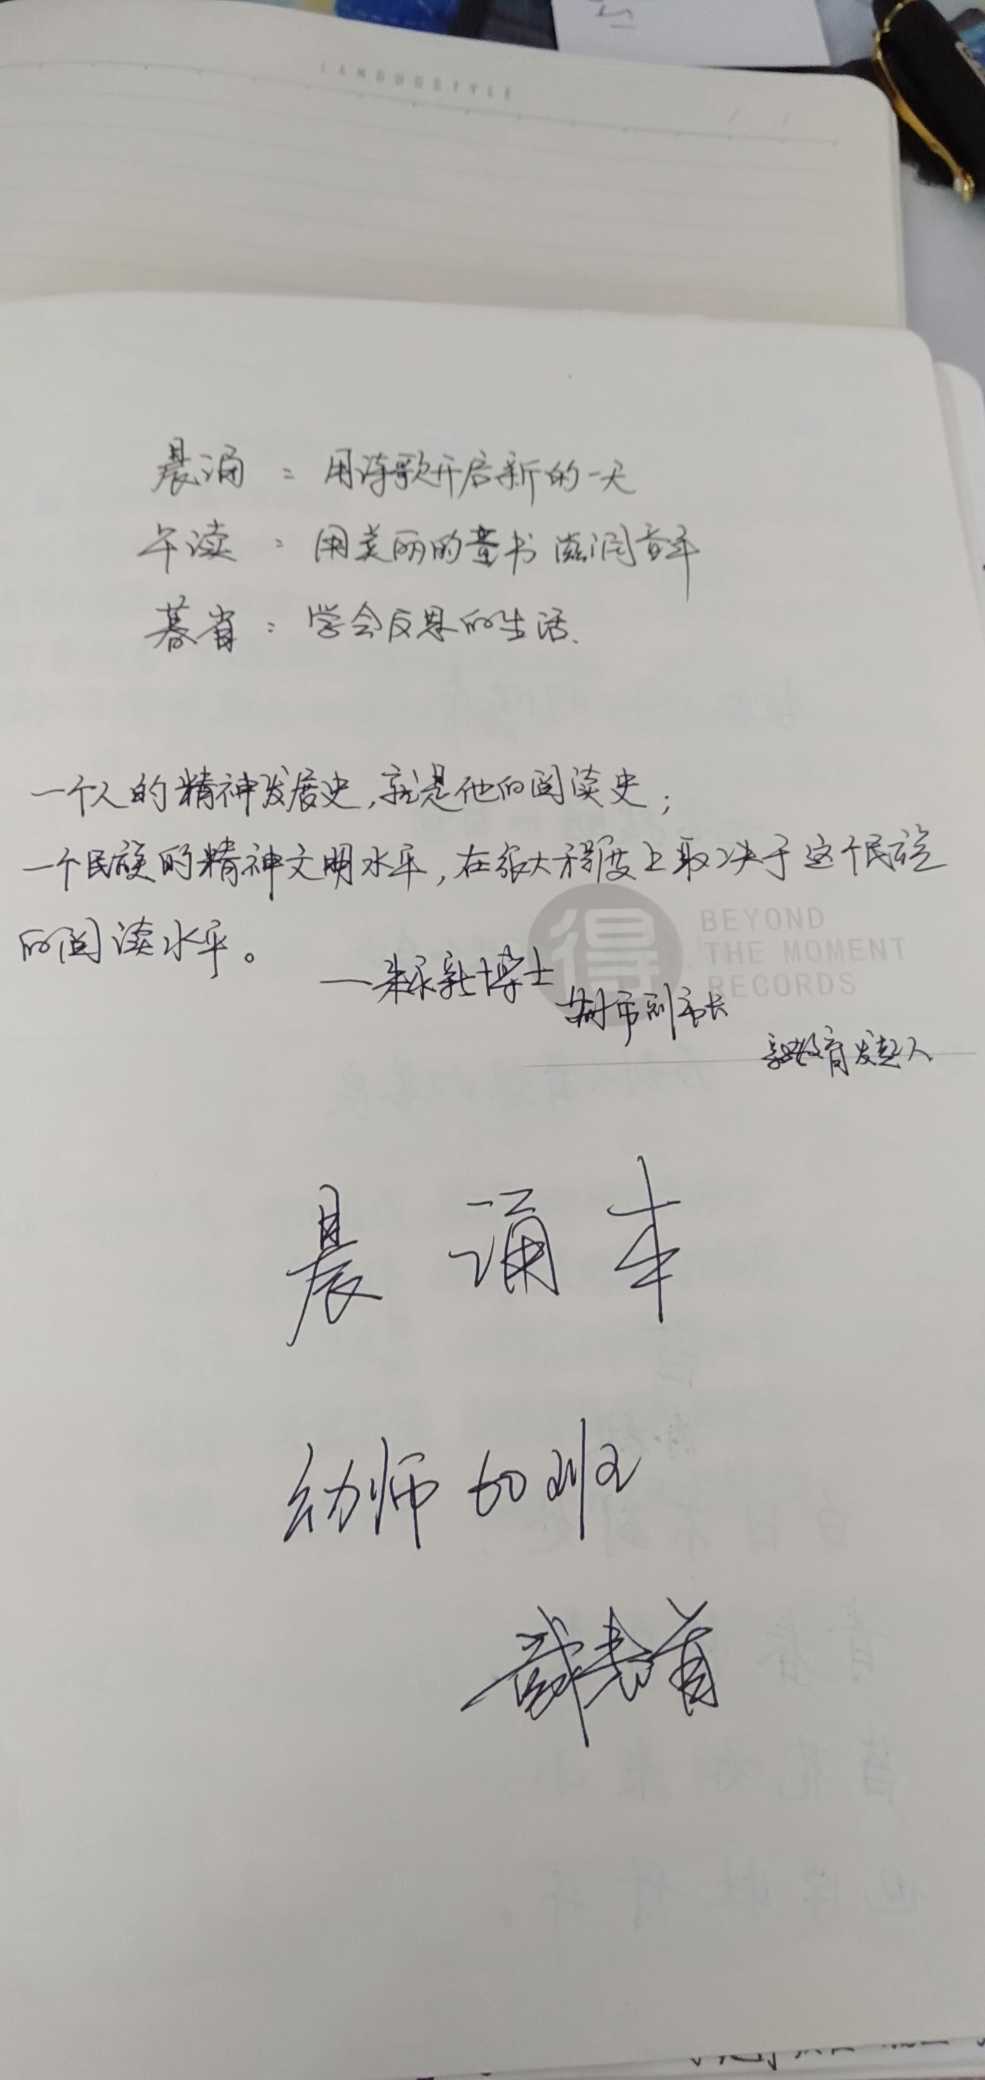 LANGUOSTYLE
晨诵：用诗歌开启新的一天
午读：用美丽的童书滋润童年
暮省：学会反思的生活.
一个人的精神发展史,就是他的阅读史；
一个民族的精神文明水平,在很大程度上取决于这个民族
的阅读水平。
——朱永新博士
得
BEYOND
THE MOMENT
RECORDS
市副市长
新教育发起人
晨诵本
幼师 60班